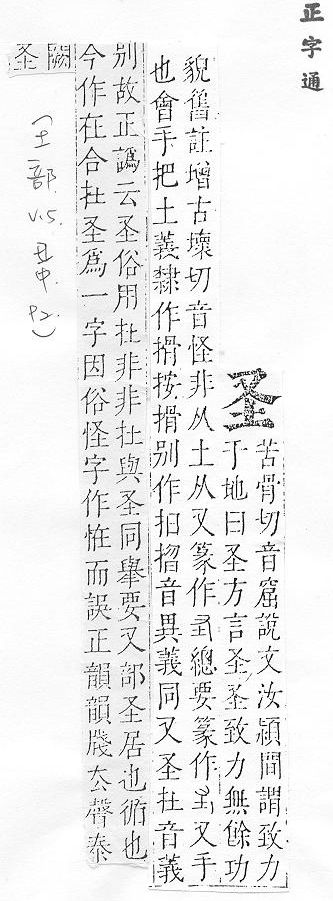 正字通
圣
苦骨切音窟說文汝潁間謂致力
于地曰圣方言圣圣致力無餘功
貌舊註增古壞切音怪非从土从又篆作總要篆作又手
也會手把土義隸作搰按搰別作扣音異義同又圣扗音義
別故正譌云圣俗用扗非非扗與圣同舉要又部圣居也循也
今作在合扗圣爲一字因俗怪字作恠而誤正韻韻牋厺聲泰
闕圣
(土部. v.5. 丑中. P2.)